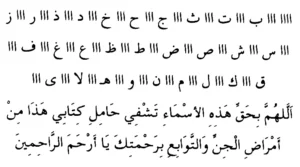 اااا ااا ب ااا ت ااا ث ااا ج ااا ح ااا خ ااا د ااا ذ ااا ر ااا ز
ااا س ااا ش ااا ص ااا ض ااا ط ااا ظ ااا ع ااا غ ااا ف ااا
ق ااا ك ااا ل ااا م ااا ن ااا و ااا هـ ااا لا ااا ى ااا
اَللّٰهُمَّ بِحَقِّ هَذِهِ الْأَسْمَاءِ تَشْفِي حَامِلِ كِتَابِي هَذَا مِنْ
أَمْرَاضِ الْجِنِّ وَالتَّوَابِعِ بِرَحْمَتِكَ يَا أَرْحَمَ الرَّاحِمِينَ